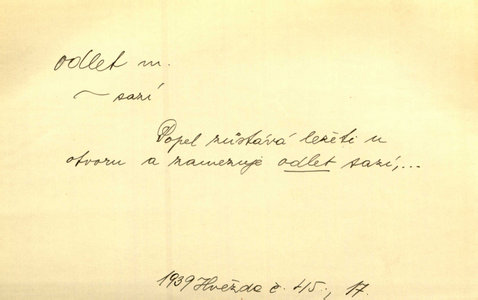 odlet m.
~ sazí
Popel zůstává ležeti u
otvoru a zamezuje odlet sazí,...
1939 Hvězda č. 45., 17.